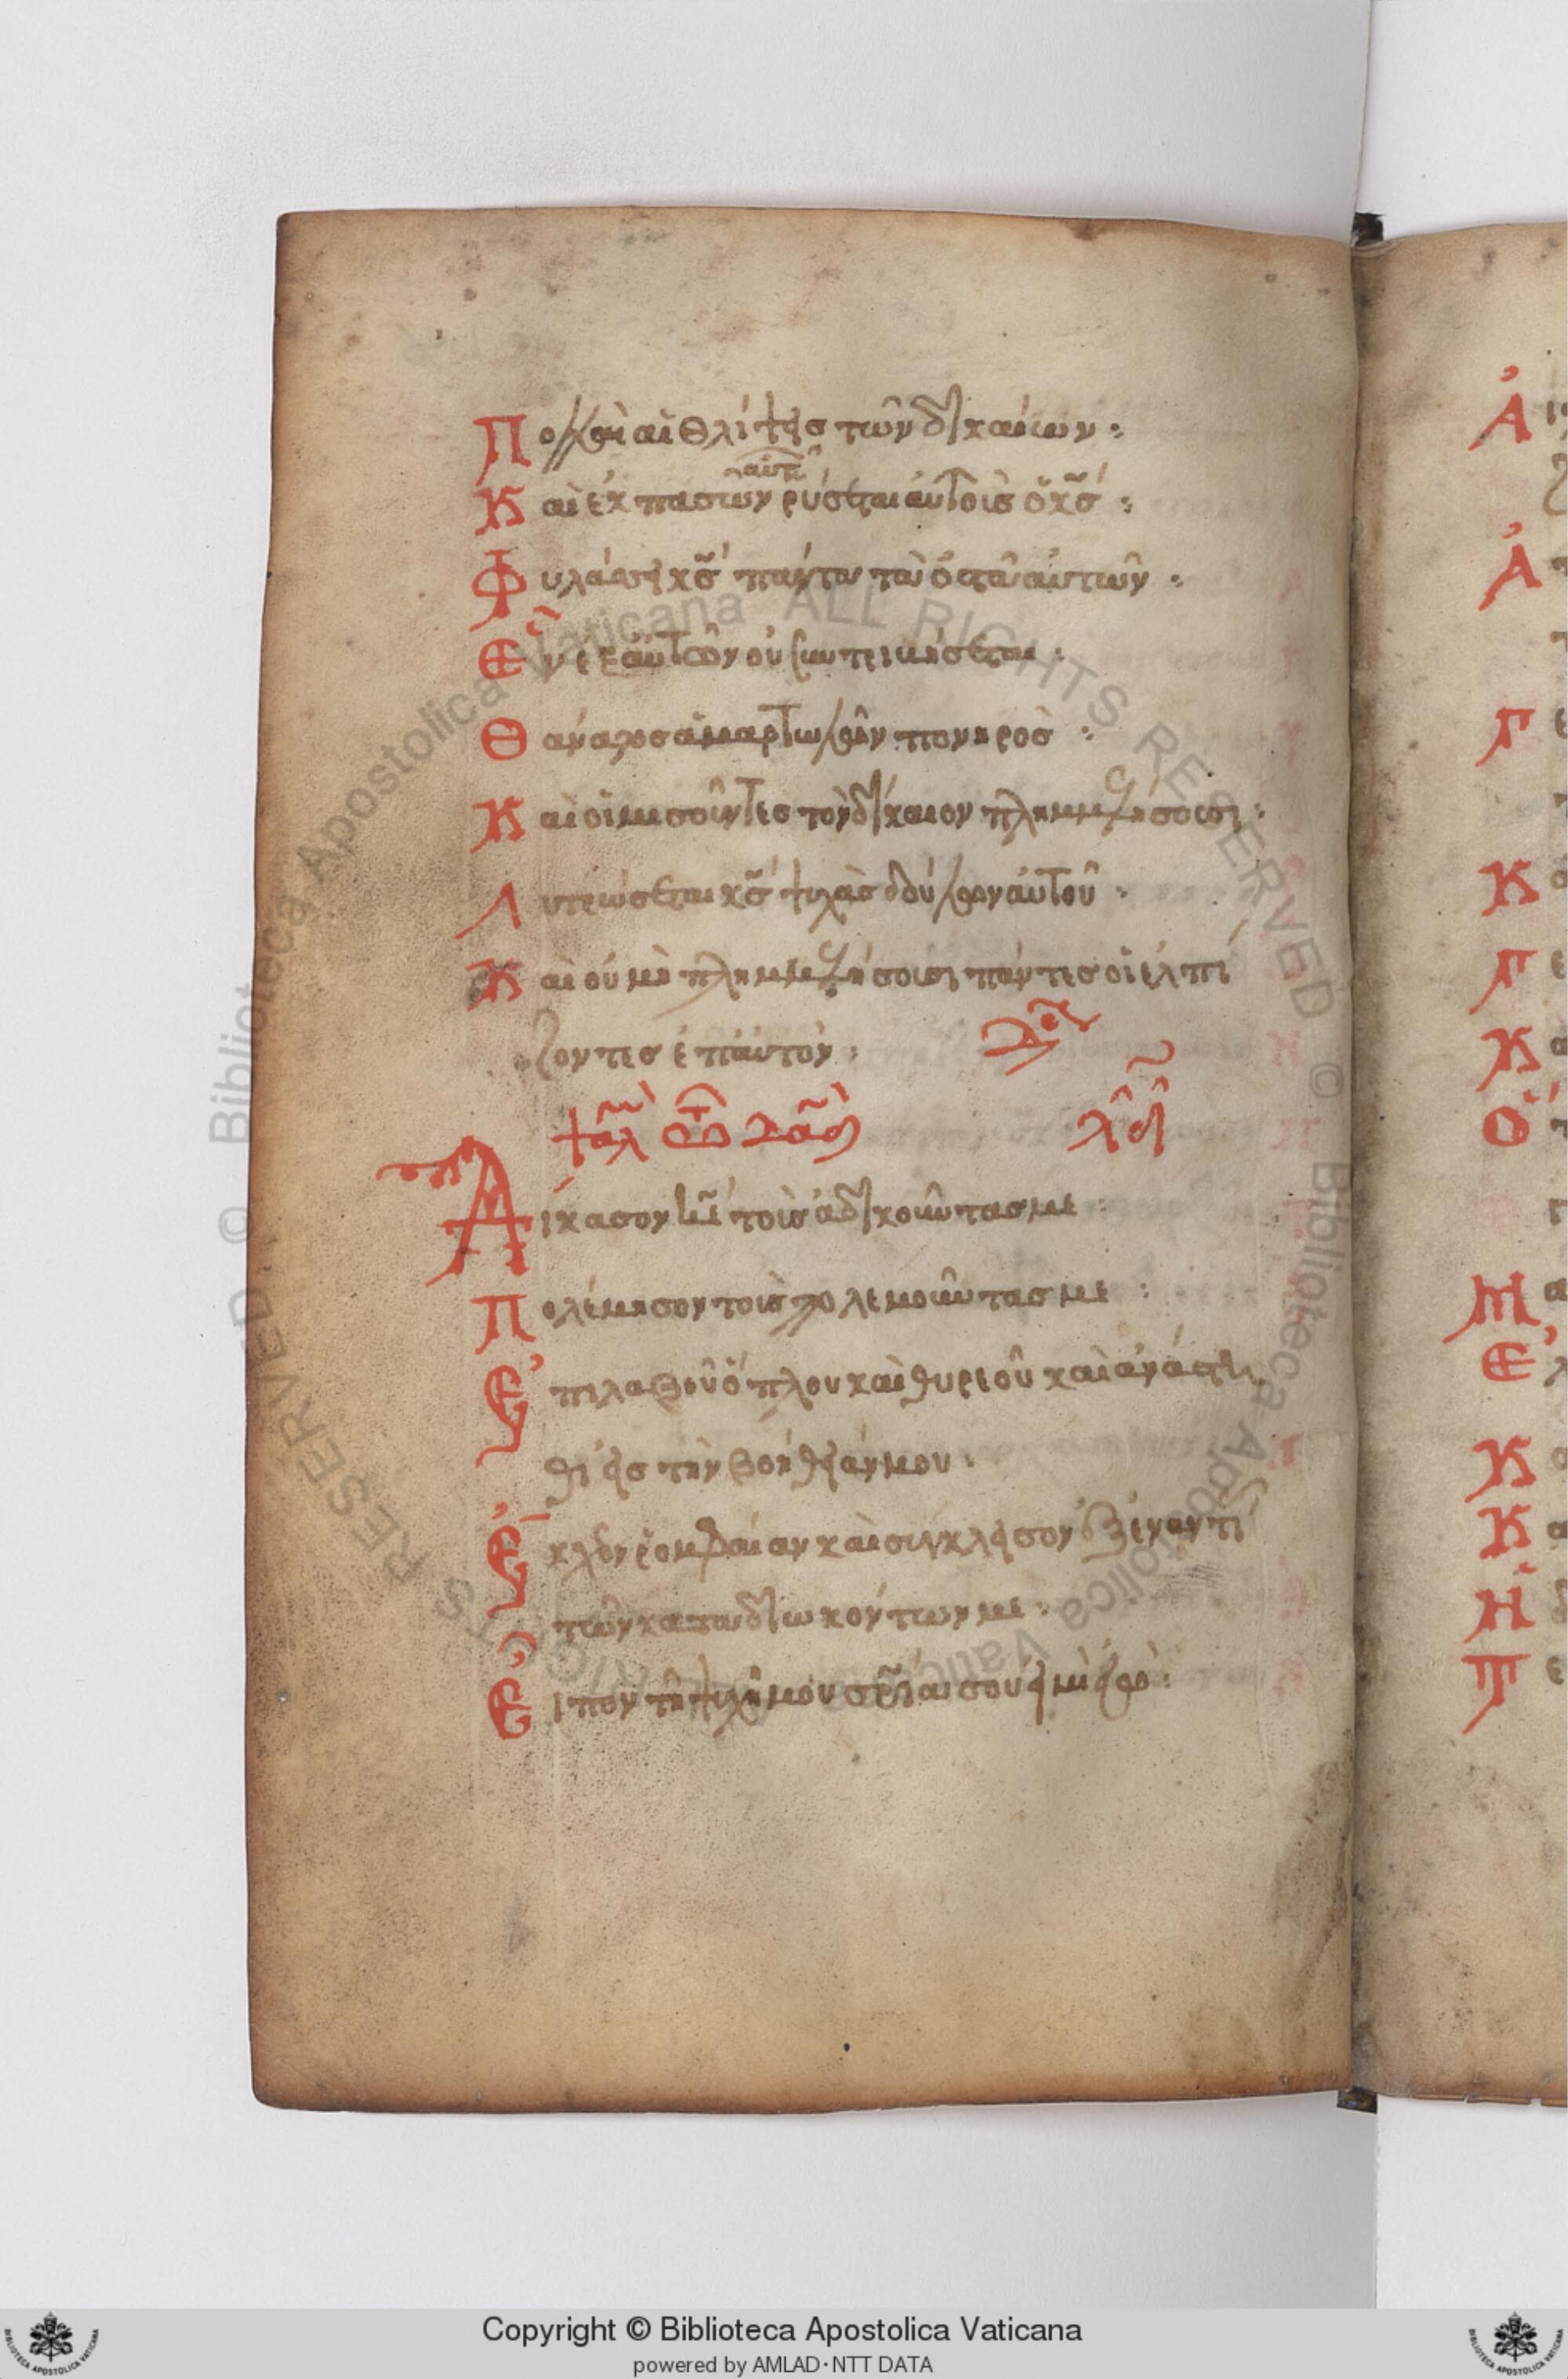 Πολλαὶ αἱ θλίψεις τῶν δικαίων :
αὐτῶν
Καὶ ἐκ πασῶν ῥύσεται αὐτοὺς ὁ κ̅ς̅ :
Φυλάσσει κ̅ς̅ πάντα τὰ ὀστᾶ αὐτῶν :
Ἓν ἐξ αὐτῶν οὐ συντριβήσεται :
Θάνατος ἁμαρτωλῶν πονηρὸς :
Καὶ οἱ μισοῦντες τὸν δίκαιον πλημμελήσουσι :
Λυτρώσεται κ̅ς̅ ψυχὰς δούλων αὐτοῦ :
Καὶ οὐ μὴ πλημμελήσουσι πάντες οἱ ἐλπί
ζοντες ἐπ αὐτὸν :
ψαλ τω δαδ λδ
Δίκασον κ̅ε̅ τοὺς ἀδικοῦντας με :
Πολέμησον τοὺς πολεμοῦντας με :
Ἐπιλαβοῦ ὅπλου καὶ θυρεοῦ καὶ ἀνάστη
θι εἰς τὴν βοήθειάν μου :
Ἔκχεον ῥομφαίαν καὶ σύγκλεισον ἐξ ἐναντί
τῶν καταδιωκόντων με :
Εἶπον τῇ ψυχῇ μου σ̅ρ̅ί̅α σου εἰμὶ ἐγὼ :
Copyright © Biblioteca Apostolica Vaticana
powered by AMLAD·NTT DATA